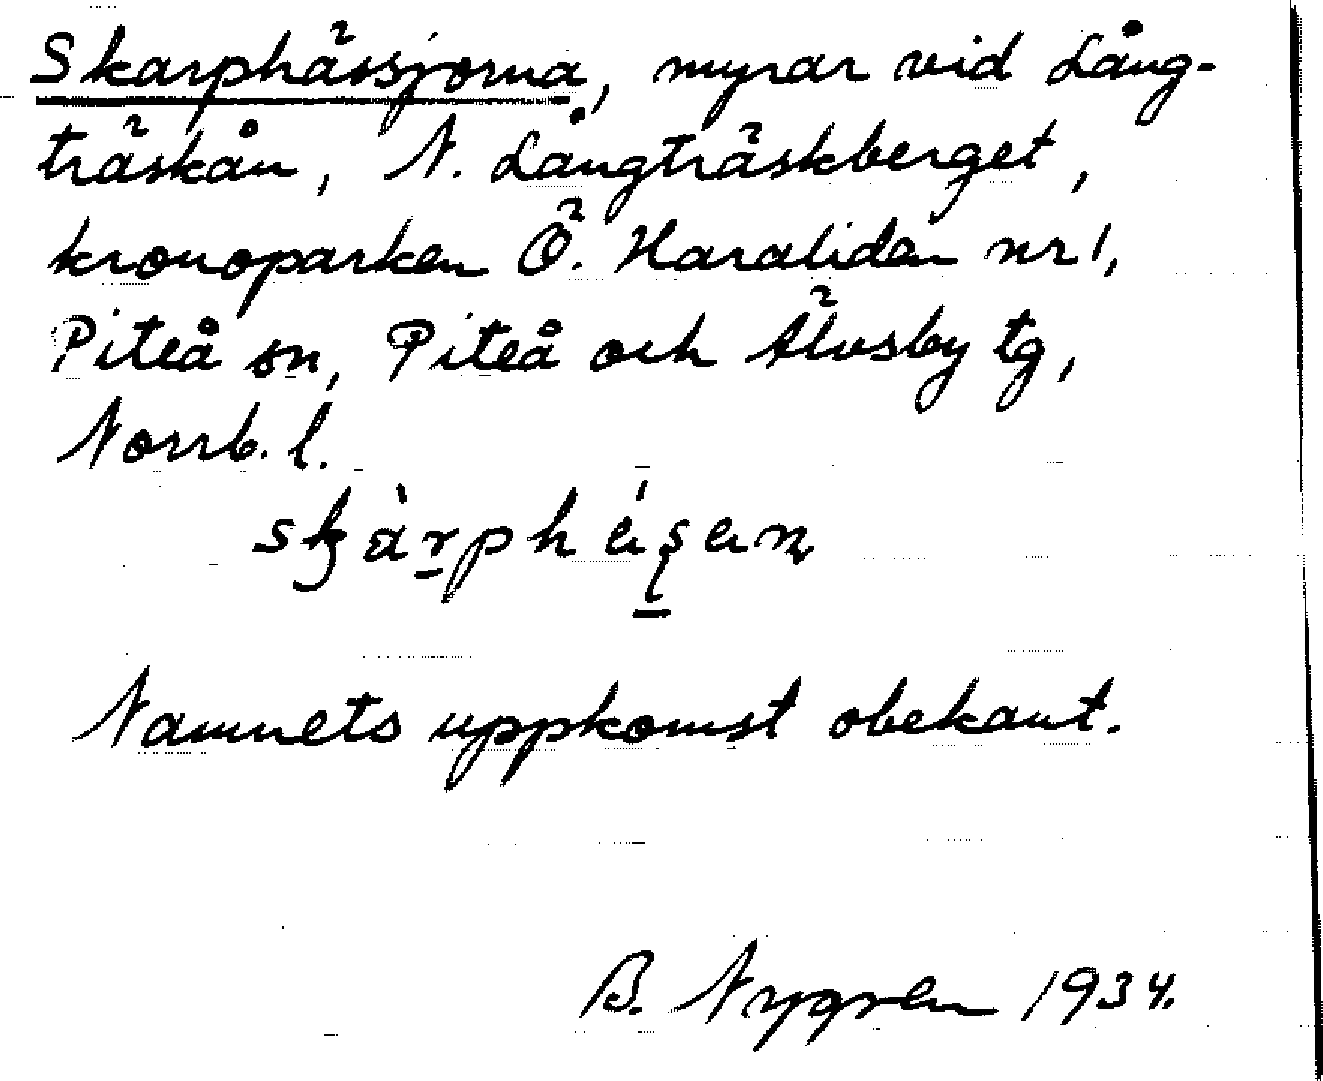 Skarphässjorna, myrar vid Lång-
träskån, N. Långträskberget,
kronoparken Ö. Haraliden nr 1,
Piteå sn, Piteå och Älvsby tg,
Norrb. l.
Namnets uppkomst obekant.
B. Nygren 1934.